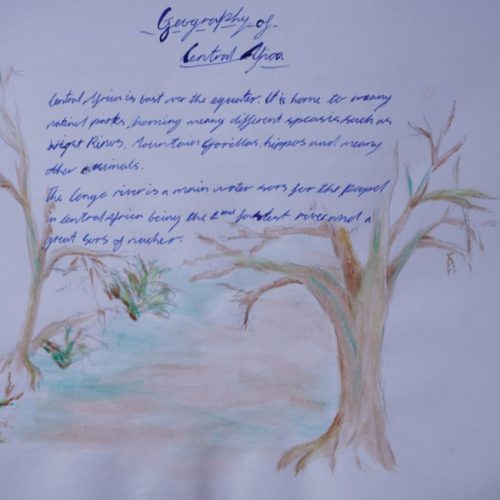 Geography of
Central Africa.
Central Africa is bast over the equater. It is home to meany
natinal parks, homing meany different speasis, such as
wight Rinos, Mountain Gorillas, hippos and meany
other animals.
The Congo river is a main water sors for the peapel
in central Africa being the 2nd fastest river and a
great sors of nucher.